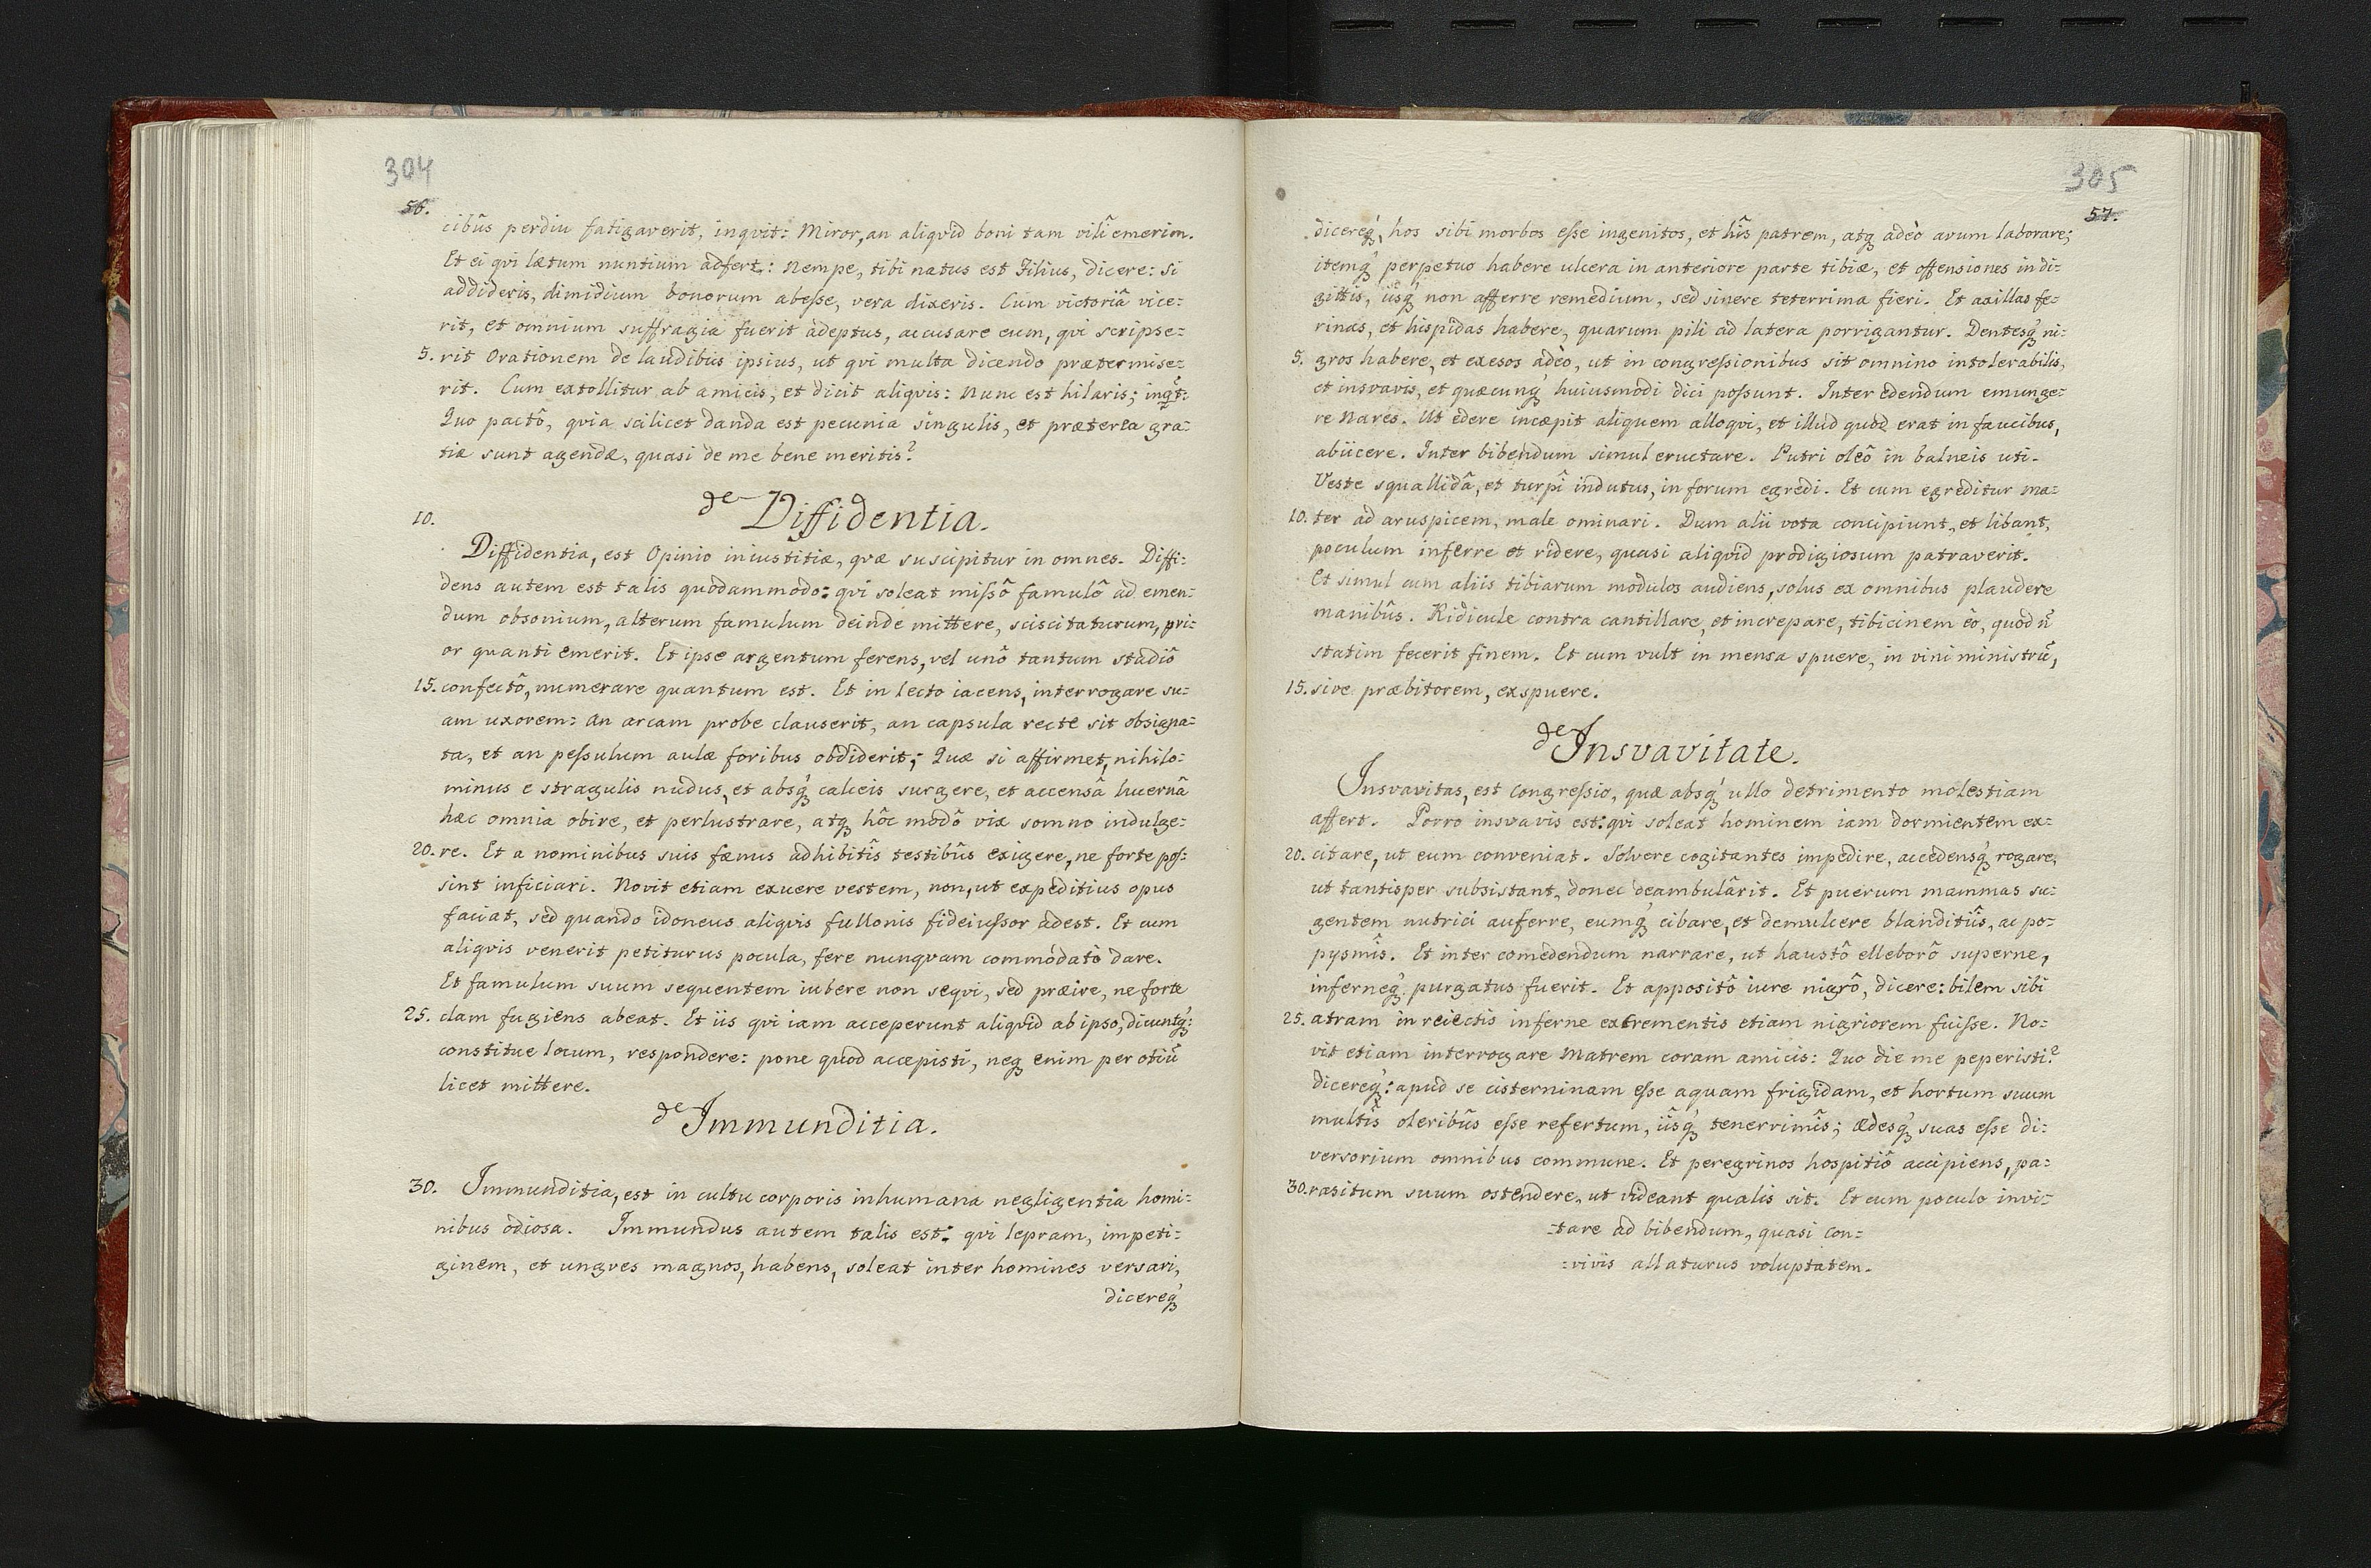 304
56.
cibûs perdiu fatigaverit, inqvit: Miror, an aliqvid boni tam vili emerim.
Et ei qvi lætum nuntium adfert: Nempe, tibi natus est Filius, dicere: si
addideris, dimidium bonorum abeſse, vera dixeris. Cum victoriâ vice=
rit, et omnium suffragia fuerit adeptus, accusare eum, qvi scripse=
5. rit Orationem de laudibus ipsius, ut qvi multa dicendo prætermise=
rit. Cum extollitur ab amicis, et dicit aliqvis: Nunc est hilaris; inq̃t:
Quo pactô, qvia scilicet danda est pecunia singulis, et præterea gra=
tiæ sunt agendæ, quasi de me bene meritis?
de Diffidentia.
10.
Diffidentia, est Opinio iniustitiæ, qvæ suscipitur in omnes. Diffi=
dens autem est talis quodammodo: qvi soleat miſsô famulô ad emen=
dum obsonium, alterum famulum deinde mittere, sciscitaturum, pri=
or quanti emerit. Et ipse argentum ferens, vel unô tantum stadiô
15. confectô, numerare quantum est. Et in lecto iacens, interrogare su=
am uxorem: an arcam probe clauserit, an capsula recte sit obsigna=
ta, et an peſsulum aulæ foribus obdiderit; Quæ si affirmet, nihilo=
minus e stragulis nudus, et absq́ꝫ calceis surgere, et accensâ lucernâ
hæc omnia obire, et perlustrare, atqꝫ hôc modô vix somno indulge=
20. re. Et a nominibus suis fænus adhibitîs testibûs exigere, ne forte poſ=
sint inficiari. Novit etiam exuere vestem, non, ut expeditius opus
faciat, sed quando idoneus aliqvis fullonis fideiuſsor adest. Et cum
aliqvis venerit petiturus pocula, fere nunqvam commodatò dare.
Et famulum suum sequentem iubere non seqvi, sed præire, ne forte
25. clam fugiens abeat. Et iis qvi iam acceperunt aliqvid ab ipso, dicuntq́ꝫ:
constitue locum, respondere: pone quod accepisti, neqꝫ enim per otiũ
licet mittere.
de Immunditia.
30. Immunditia, est in cultu corporis inhumana negligentia homi=
nibus odiosa. Immundus autem talis est: qvi lepram, impeti=
ginem, et ungves magnos, habens, soleat inter homines versari,
dicereq́ꝫ
305
57.
dicereq́ꝫ, hos sibi morbos eſse ingenitos, et hîs patrem, atqꝫ adeò avum laborare;
itemq́ꝫ perpetuo habere ulcera in anteriore parte tibiæ, et offensiones in di=
gitis, iisq́ꝫ non afferre remedium, sed sinere teterrima fieri. Et axillas fe=
rinas, et hispidas habere, quarum pili ad latera porrigantur. Dentesq́ꝫ ni=
5. gros habere, et exesos adeo, ut in congreſsionibus sit omnino intolerabilis,
et insvavis, et quæcunq́ꝫ huiusmodi dici poſsunt. Inter edendum emunge=
re Nares. Ut edere incæpit aliquem alloqvi, et illud quod erat in faucibus,
abiicere. Inter bibendum simul eructare. Putri oleô in balneis uti.
Veste squallidâ, et turpî indutus, in forum egredi. Et cum egreditur ma=
10. ter ad aruspicem, male ominari. Dum alii vota concipiunt, et libant,
poculum inferre et ridere, quasi aliqvid prodigiosum patraverit.
Et simul cum aliis tibiarum modulos audiens, solus ex omnibus plaudere
manibûs. Ridicule contra cantillare, et increpare, tibicinem eò, quod ñ
statim fecerit finem. Et cum vult in mensa spuere, in vini ministrũ,
15. sive præbitorem, exspuere.
de Insvavitate.
Insvavitas, est Congreſsio, quæ absq́ꝫ ullo detrimento molestiam
affert. Porro insvavis est: qvi soleat hominem iam dormientem ex=
20. citare, ut eum conveniat. Solvere cogitantes impedire, accedensq́ꝫ rogare,
ut tantisper subsistant, donec deambulârit. Et puerum mammas su=
gentem nutrici auferre, eumq́ꝫ cibare, et demulcere blanditiîs, ac po=
pysmîs. Et inter comedendum narrare, ut haustô elleborô superne,
inferneq́ꝫ purgatus fuerit. Et appositô iure nigrô, dicere: bilem sibi
25. atram in reiectis inferne extrementis etiam nigriorem fuiſse. No=
vit etiam interrogare Matrem coram amicis: Quo die me peperisti?
dicereq́ꝫ: apud se cisterninam eſse aquam frigidam, et hortum suum
multîs oleribûs eſse refertum, iîsq́ꝫ tenerrimîs; ædesq́ꝫ suas eſse di=
versorium omnibus commune. Et peregrinos hospitiô accipiens, pa=
30. rasitum suum ostendere, ut videant qualis sit. Et cum poculo invi=
=tare ad bibendum, quasi con=
=viviis allaturus voluptatem.